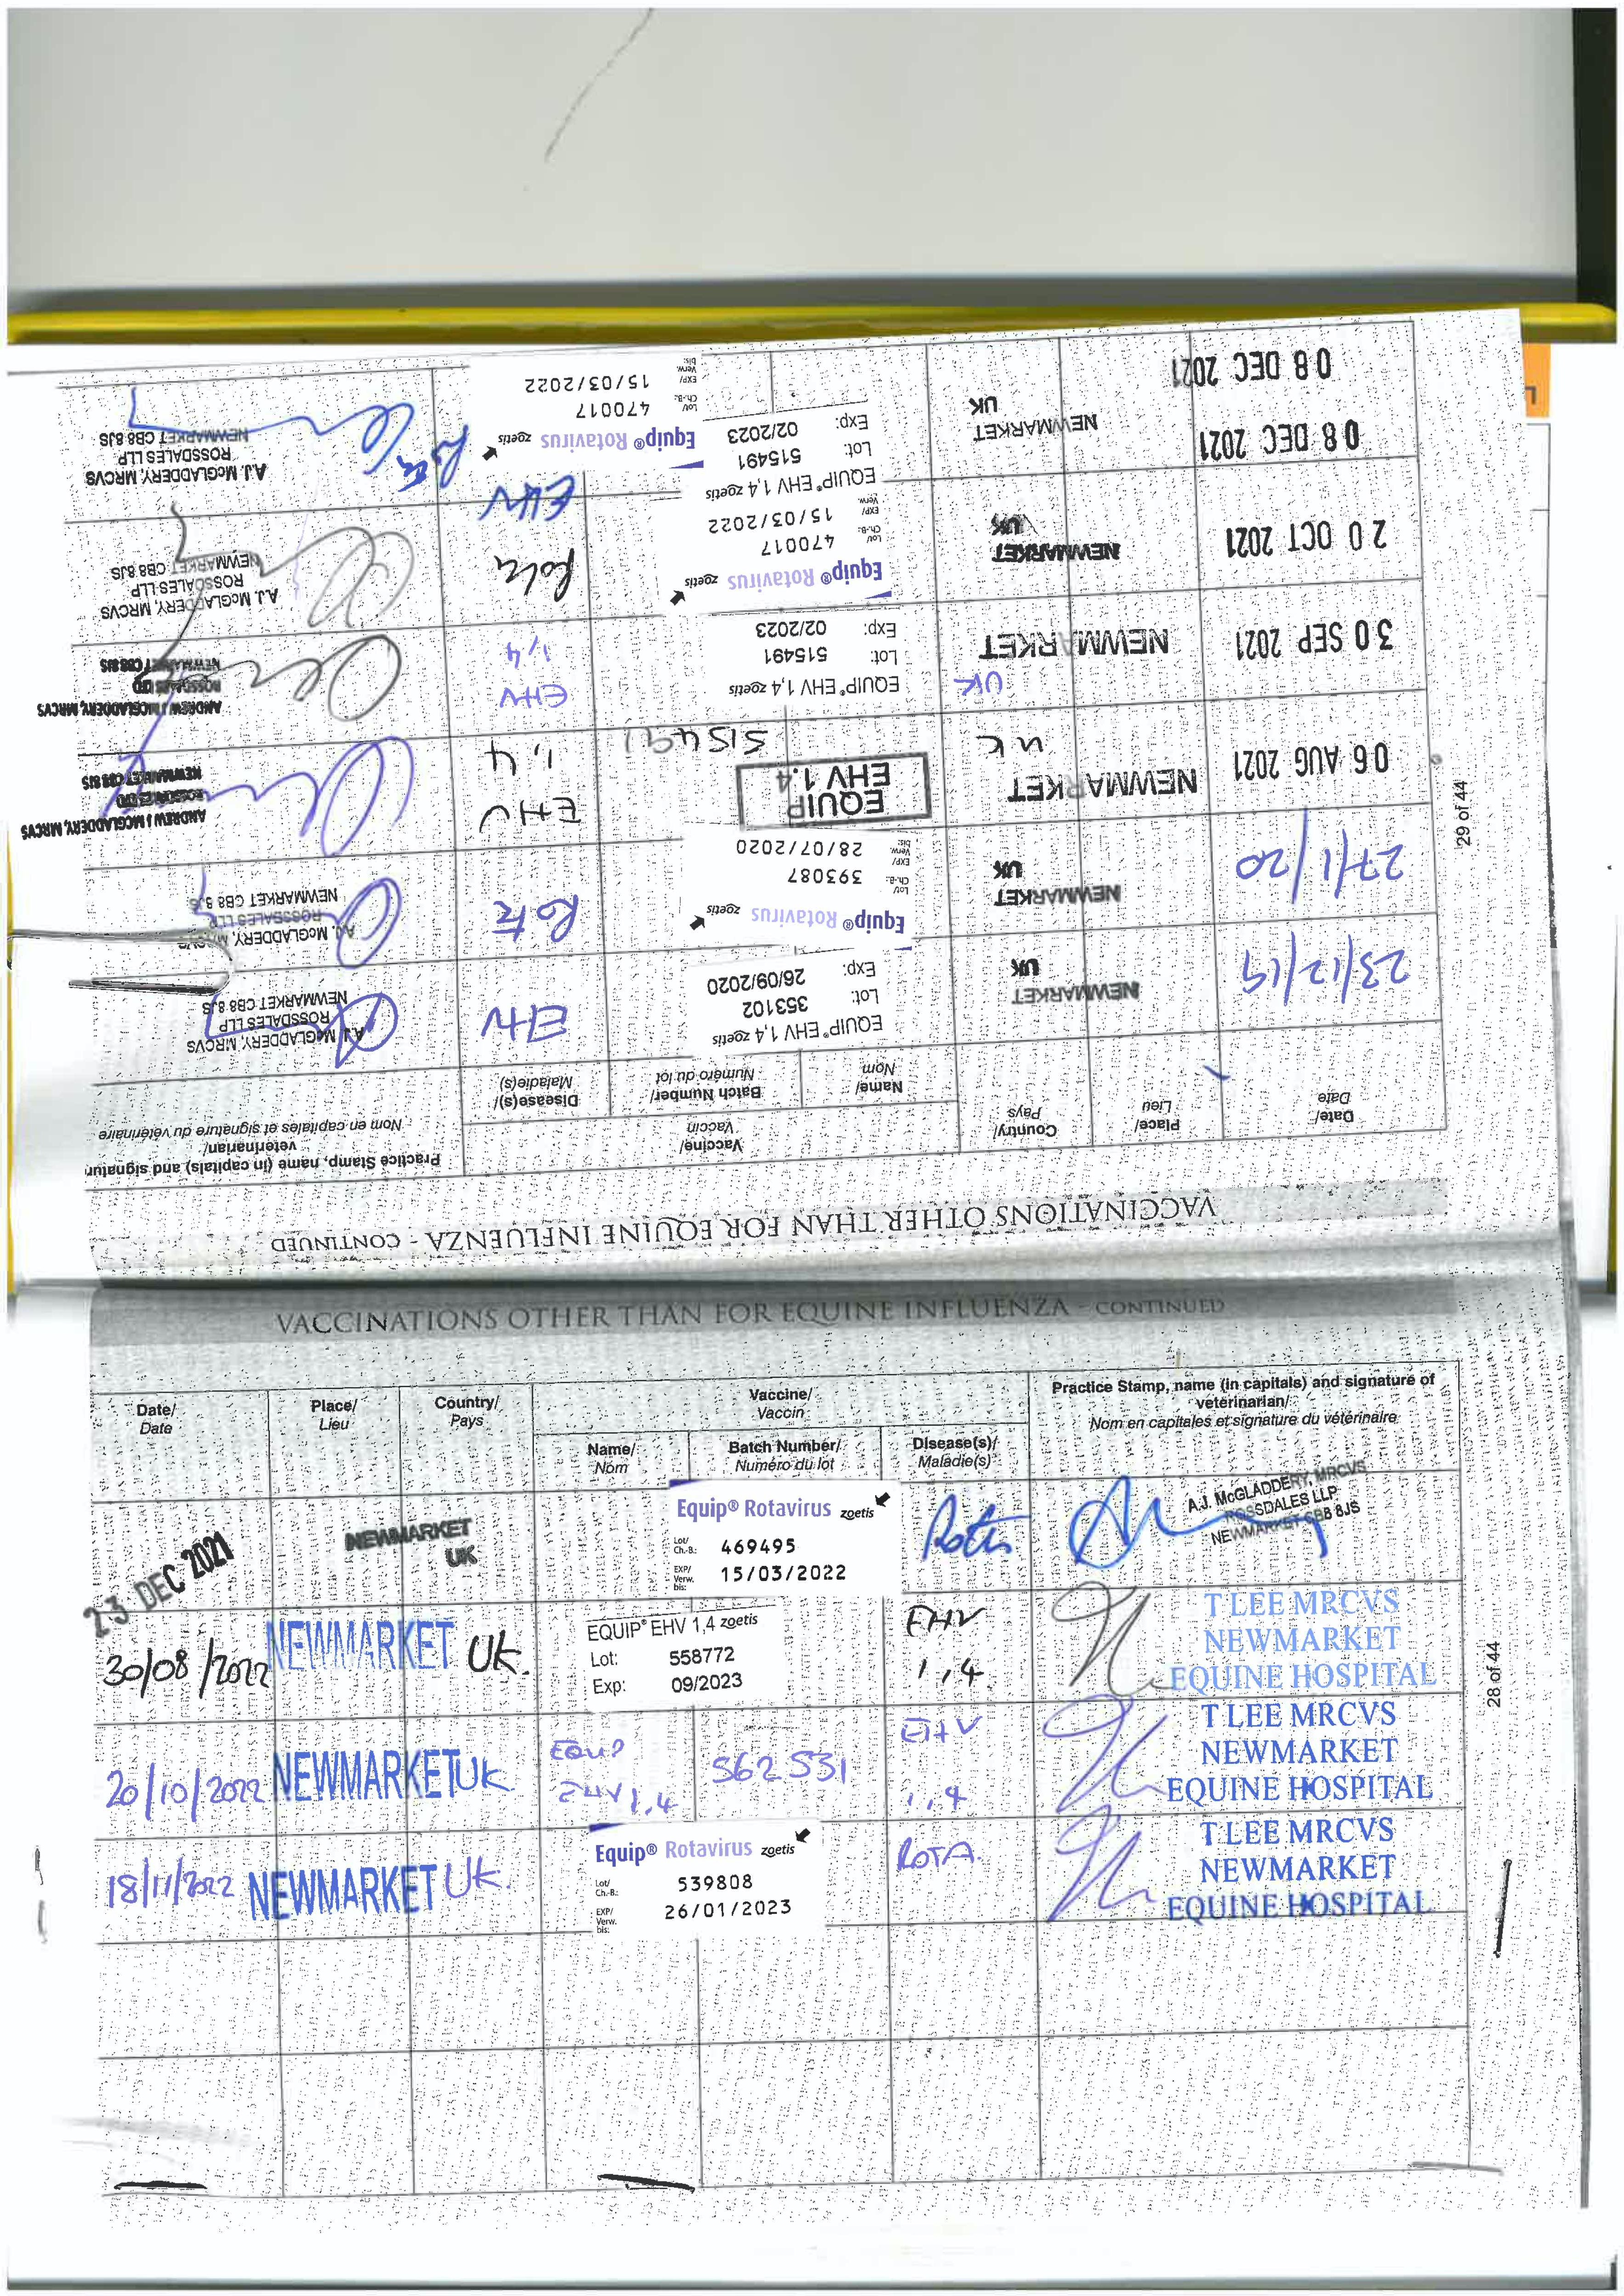 VACCINATIONS OTHER THAN FOR EQUINE INFLUENZA - CONTINUED
Date/ Date
Place/ Lieu
Country/ Pays
Vaccine/ Vaccin
Name/ Nom
Batch Number/ Numéro du lot
Disease(s)/ Maladie(s)
Practice Stamp, name (in capitals) and signature
veterinarian/
Nom en capitales et signature du vétérinaire
23/12/19
NEWMARKET
UK
EQUIP® EHV 1,4 zoetis
Lot: 353102
Exp: 26/09/2020
EHV
A.J. McGLADDERY, MRCVS
ROSSDALES LLP
NEWMARKET CB8 8JS
27/1/20
NEWMARKET
UK
Equip® Rotavirus zoetis
Lot/ Ch.-B.: 393087
EXP/ Verw. bis: 28/07/2020
Rota
A.J. McGLADDERY, MRCVS
ROSSDALES LLP
NEWMARKET CB8 8JS
06 AUG 2021
NEWMARKET
UK
EQUIP
EHV 1.4
515491
EHV
1,4
ANDREW J MCGLADDERY, MRCVS
ROSSDALES LTD
NEWMARKET CB8 8JS
30 SEP 2021
NEWMARKET
UK
EQUIP® EHV 1,4 zoetis
Lot: 515491
Exp: 02/2023
EHV
1/4
ANDREW J MCGLADDERY, MRCVS
ROSSDALES LTD
NEWMARKET CB8 8JS
20 OCT 2021
NEWMARKET
UK
Equip® Rotavirus zoetis
Lot/ Ch.-B.: 470017
EXP/ Verw. 15/03/2022
Rota
A.J. McGLADDERY, MRCVS
ROSSDALES LLP
NEWMARKET CB8 8JS
08 DEC 2021
08 DEC 2021
NEWMARKET
UK
EQUIP® EHV 1,4 zoetis
Lot: 515491
Exp: 02/2023
EHV
Equip® Rotavirus zoetis
Lot/ Ch.-B.: 470017
EXP/ Verw. bis: 15/03/2022
Rota
A.J. McGLADDERY, MRCVS
ROSSDALES LLP
NEWMARKET CB8 8JS
29 of 44
VACCINATIONS OTHER THAN FOR EQUINE INFLUENZA - CONTINUED
Date/ Date
Place/ Lieu
Country/ Pays
Vaccine/ Vaccin
Name/ Nom
Batch Number/ Numéro du lot
Disease(s)/ Maladie(s)
Practice Stamp, name (in capitals) and signature of
veterinarian/
Nom en capitales et signature du vétérinaire
23 DEC 2021
NEWMARKET
UK
Equip® Rotavirus zoetis
Lot/ Ch.-B.: 469495
EXP/ Verw. bis: 15/03/2022
Rota
A.J. McGLADDERY, MRCVS
ROSSDALES LLP
NEWMARKET CB8 8JS
30/08/2022
NEWMARKET UK.
EQUIP® EHV 1,4 zoetis
Lot: 558772
Exp: 09/2023
EHV
1,4
T LEE MRCVS
NEWMARKET
EQUINE HOSPITAL
20/10/2022
NEWMARKET UK
EQUIP
EHV 1,4
562531
EHV
1,4
T LEE MRCVS
NEWMARKET
EQUINE HOSPITAL
18/11/2022
NEWMARKET UK.
Equip® Rotavirus zoetis
Lot/ Ch.-B.: 539808
EXP/ Verw. bis: 26/01/2023
ROTA.
T LEE MRCVS
NEWMARKET
EQUINE HOSPITAL
28 of 44